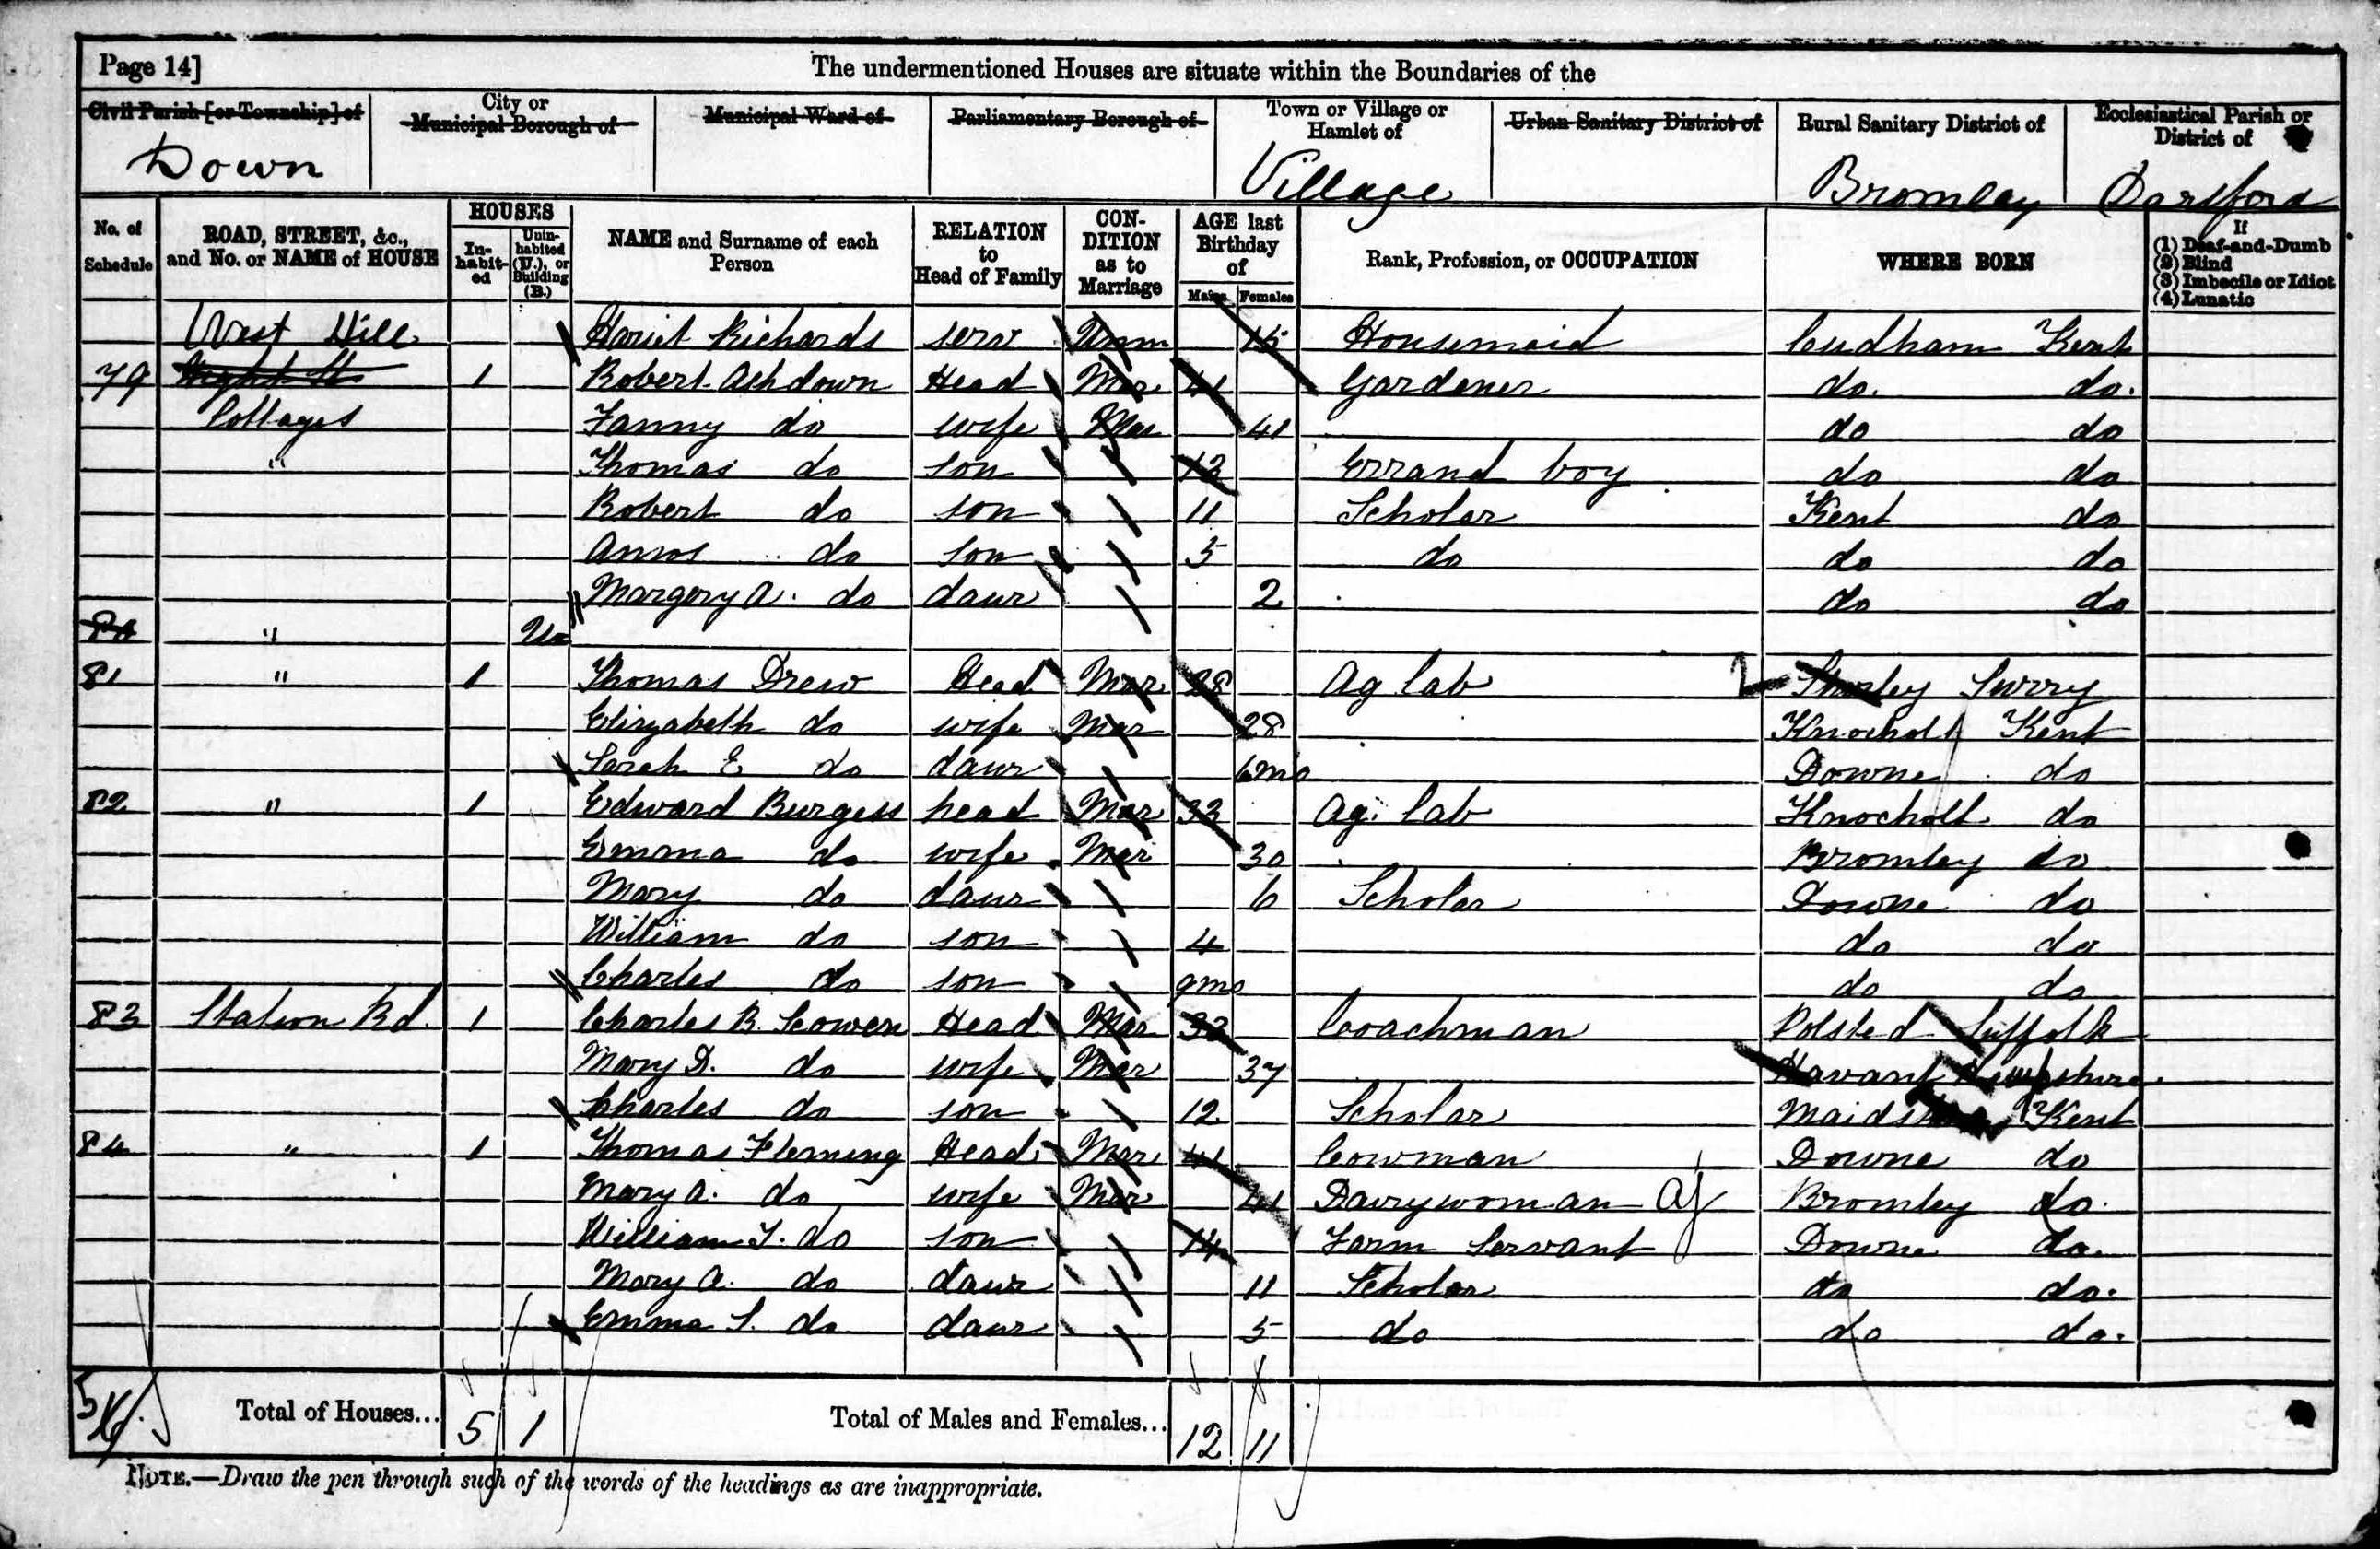 Page 14]
The undermentioned Houses are situate within the Boundaries of the
Civil Parish [or Township] of City or Municipal Borough of Municipal Ward of Parliamentary Borough of Town or Village or Hamlet of Urban Sanitary District of Rural Sanitary District of Ecclesiastical Parish or District of
Down Village Bromley Dartford
No. of Schedule ROAD, STREET, &c., and No. or NAME of HOUSE HOUSES In-habit-ed Unin-habited (U.), or Building (B.) NAME and Surname of each Person RELATION to Head of Family CON-DITION as to Marriage AGE last Birthday of Males Females Rank, Profession, or OCCUPATION WHERE BORN If (1) Deaf-and-Dumb (2) Blind (3) Imbecile or Idiot (4) Lunatic
West Hill Hariet Richards serv Unm 15 Housemaid Cudham Kent
79 1 Robert Ashdown Head Mar 41 Gardener do. do.
Cottages Fanny do wife Mar 41 do do
" Thomas do son 12 Errand boy do do
Robert do son 11 Scholar Kent do
Amos do son 5 do do do
Margery A. do daur 2 do do
80 " Un
81 " 1 Thomas Drew Head Mar 28 Ag lab 2 Shirley Surry
Elizabeth do wife Mar 28 Knocholt Kent
Sarah E do daur 6mo Downe do
82 " 1 Edward Burgess head Mar 33 Ag. lab Knocholt do
Emma do wife Mar 30 Bromley do
Mary do daur 6 Scholar Downe do
William do son 4 do do
Charles do son 9mo do do
83 Station Rd. 1 Charles B. Cowen Head Mar 33 Coachman Polsted Suffolk
Mary D. do wife Mar 37 Havant Hampshire
Charles do son 12 Scholar Maidstone Kent
84 " 1 Thomas Fleming Head Mar 41 Cowman Downe do
Mary A. do wife Mar 41 Dairywoman Bromley do.
William T. do son 14 Farm Servant Downe do.
Mary A. do daur 11 Scholar do do.
Emma S. do daur 5 do do do.
Total of Houses... 5 1 Total of Males and Females... 12 11
NOTE.—Draw the pen through such of the words of the headings as are inappropriate.